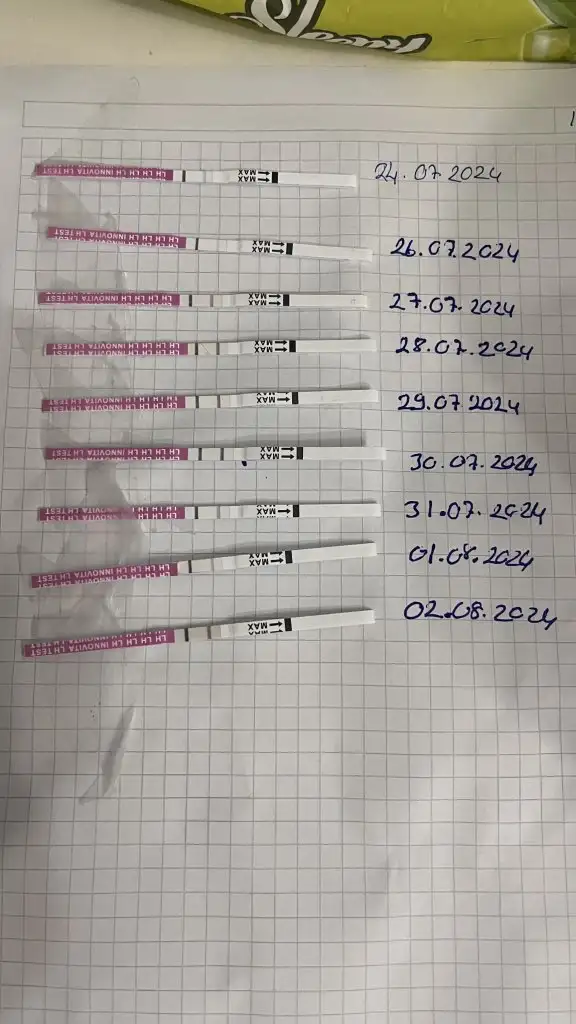 24.07.2024
LH LH LH LH INNOVITA LH TEST
MAX
26.07.2024
LH LH LH LH INNOVITA LH TEST
MAX
27.07.2024
LH LH LH LH INNOVITA LH TEST
MAX
28.07.2024
LH LH LH LH INNOVITA LH TEST
MAX
29.07.2024
LH LH LH LH INNOVITA LH TEST
MAX
30.07.2024
LH LH LH LH INNOVITA LH TEST
MAX
31.07.2024
LH LH LH LH INNOVITA LH TEST
MAX
01.08.2024
LH LH LH LH INNOVITA LH TEST
MAX
02.08.2024
LH LH LH LH INNOVITA LH TEST
MAX